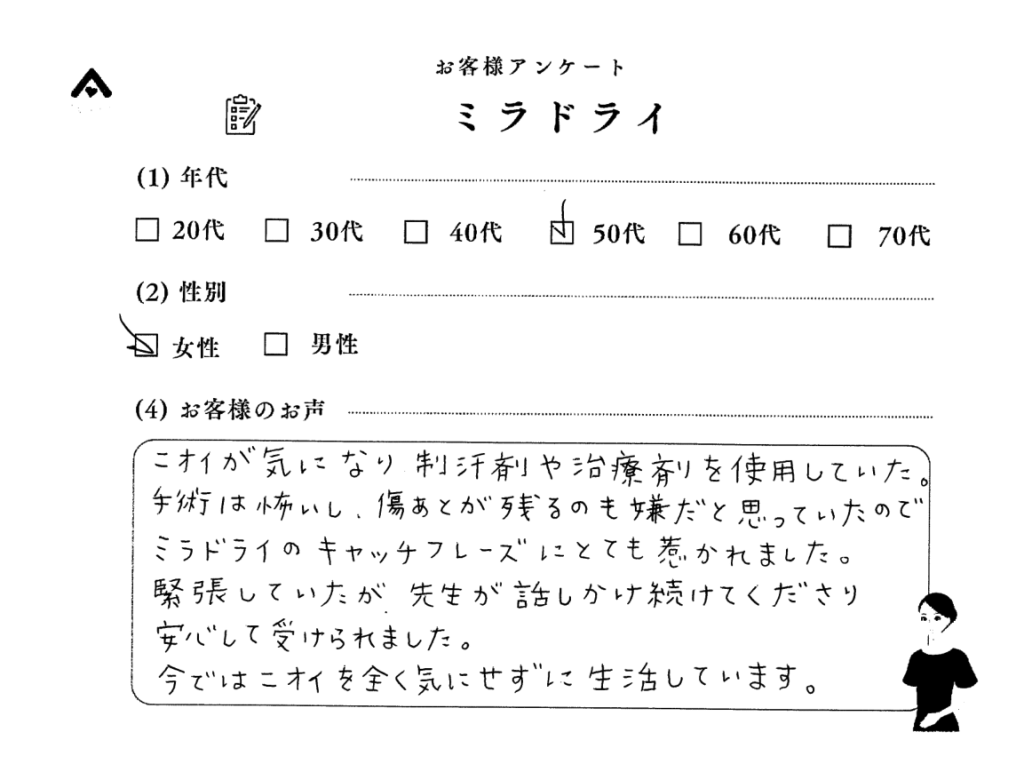 お客様アンケート
ミラドライ
(1) 年代
20代 30代 40代 50代 60代 70代
(2) 性別
女性 男性
(4) お客様のお声
ニオイが気になり制汗剤や治療剤を使用していた。
手術は怖いし、傷あとが残るのも嫌だと思っていたので
ミラドライのキャッチフレーズにとても惹かれました。
緊張していたが、先生が話しかけ続けてくださり
安心して受けられました。
今ではニオイを全く気にせずに生活しています。